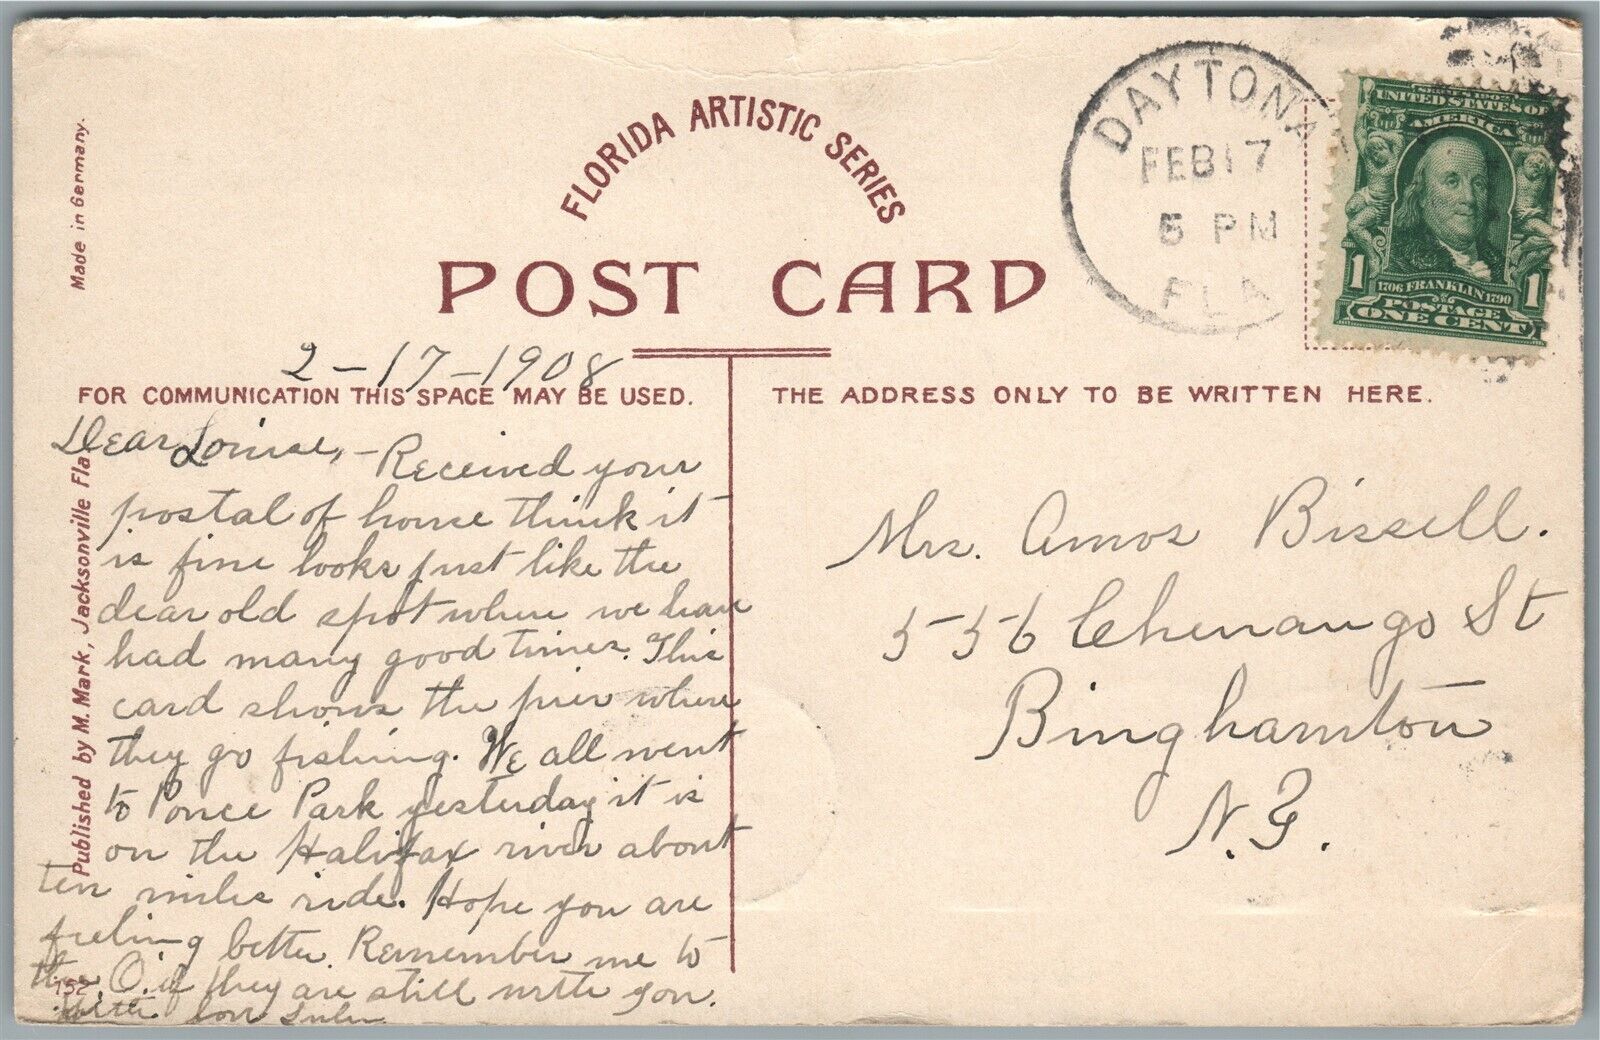 FLORIDA ARTISTIC SERIES
POST CARD
Made in Germany.
Published by M. Mark, Jacksonville Fla
DAYTONA
FEB 17
5 PM
FLA
SERIES 1902
UNITED STATES OF
AMERICA
1706 FRANKLIN 1790
1 1
POSTAGE
ONE CENT
2-17-1908
FOR COMMUNICATION THIS SPACE MAY BE USED.
THE ADDRESS ONLY TO BE WRITTEN HERE.
Dear Louise,- Received your
postal of house think it
is fine looks just like the
dear old spot where we have
had many good times. This
card shows the pier where
they go fishing. We all went
to Ponce Park yesterday it is
on the Halifax river about
ten miles ride. Hope you are
feeling better. Remember me to
the O. if they are still with you.
With love Lulu
152
Mrs. Amos Bissell.
556 Chenango St
Binghamton
N.Y.